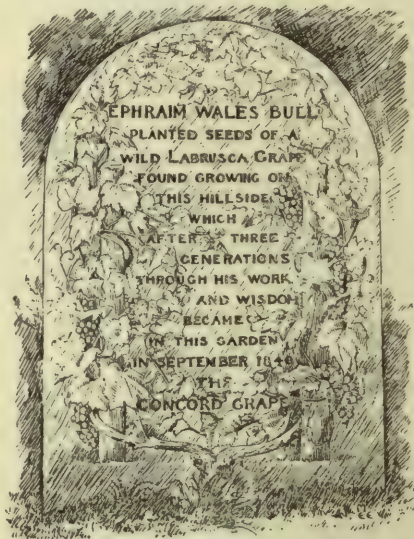 EPHRAIM WALES BULL
PLANTED SEEDS OF A
WILD LABRUSCA GRAPE
FOUND GROWING ON
THIS HILLSIDE
WHICH
AFTER THREE
GENERATIONS
THROUGH HIS WORK
AND WISDOM
BECAME
IN THIS GARDEN
IN SEPTEMBER 1849
THE
CONCORD GRAPE